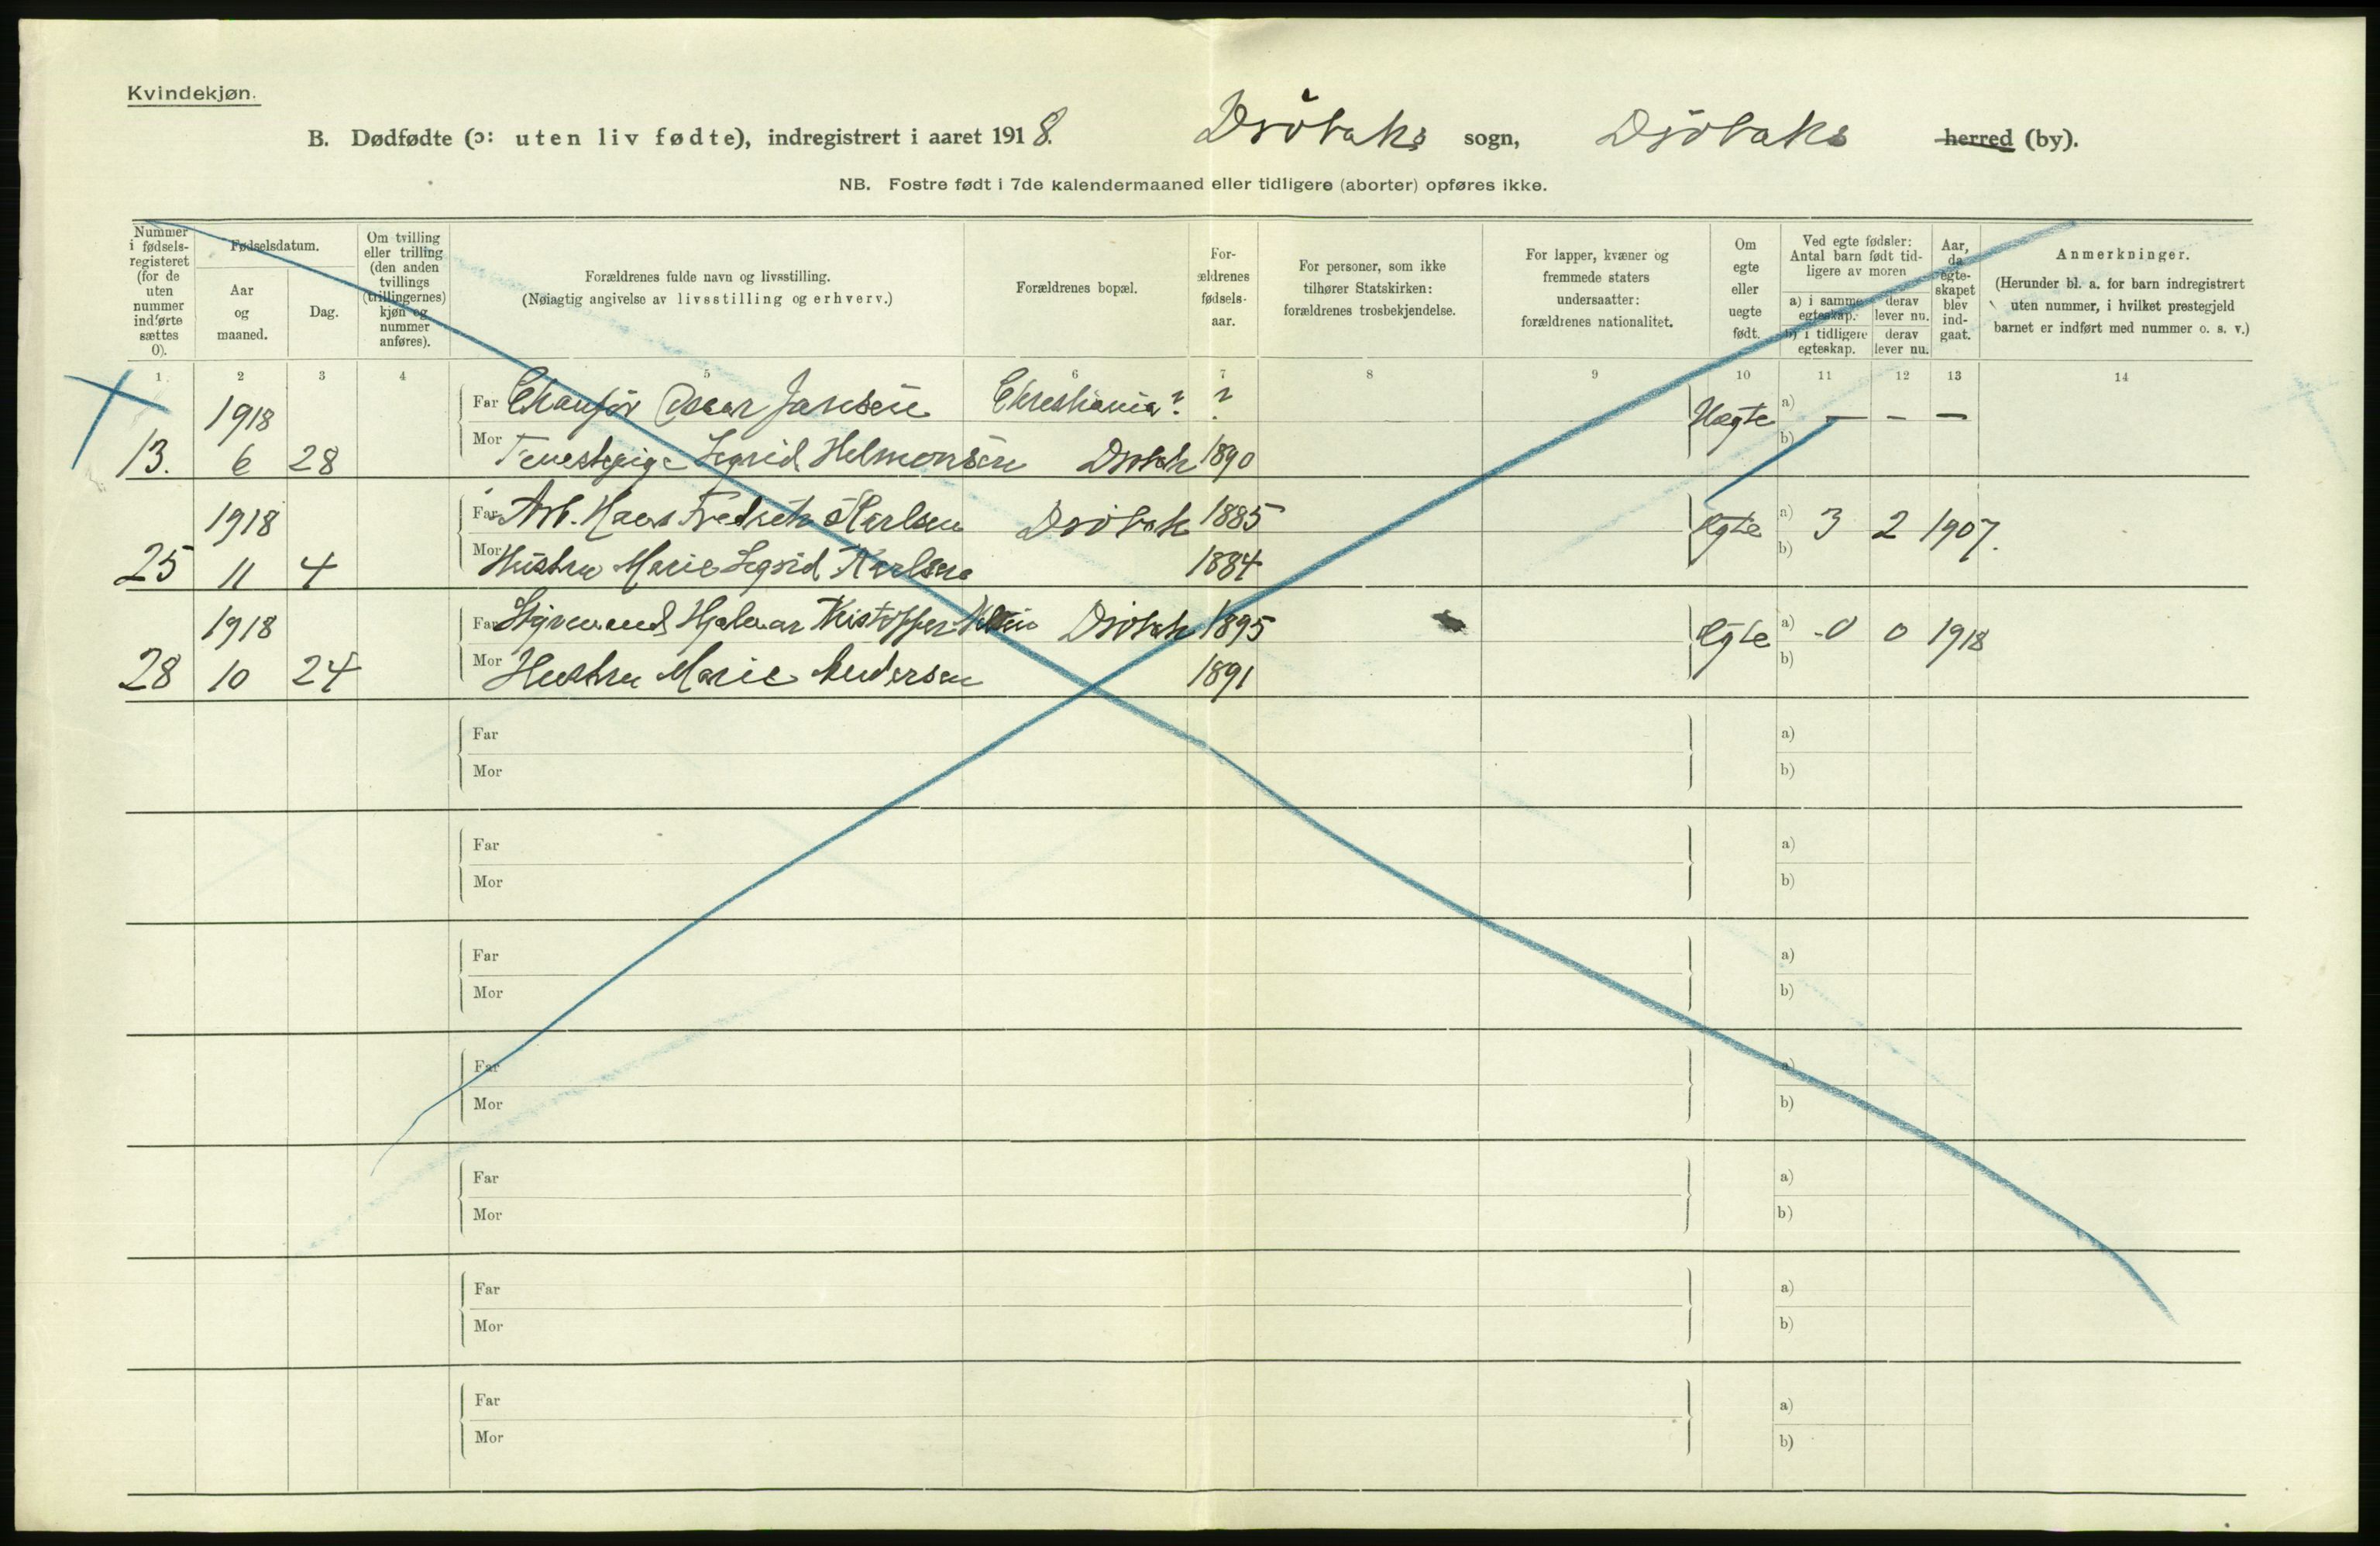 Kvindekjøn.
B. Dødfødte (ɔ: uten liv fødte), indregistrert i aaret 1918. Drøbaks sogn, Drøbaks herred (by).
NB. Fostre født i 7de kalendermaaned eller tidligere (aborter) opføres ikke.
Nummer i fødsels-registeret (for de uten nummer indførte sættes 0).
Fødselsdatum.
Aar og maaned.
Dag.
Om tvilling eller trilling (den anden tvillings (trillingernes) kjøn og nummer anføres).
Forældrenes fulde navn og livsstilling.
(Nøiagtig angivelse av livsstilling og erhverv.)
Forældrenes bopæl.
For-ældrenes fødsels-aar.
For personer, som ikke tilhører Statskirken: forældrenes trosbekjendelse.
For lapper, kvæner og fremmede staters undersaatter: forældrenes nationalitet.
Om egte eller uegte født.
Ved egte fødsler: Antal barn født tid-ligere av moren
a) i samme egteskap.
derav lever nu.
b) i tidligere egteskap.
derav lever nu.
Aar, da egte-skapet blev ind-gaat.
Anmerkninger.
(Herunder bl. a. for barn indregistrert uten nummer, i hvilket prestegjeld barnet er indført med nummer o. s. v.)
1 2 3 4 5 6 7 8 9 10 11 12 13 14
1918 Far Chauför Oscar Jansen Christiania? ? Uegte a) — – —
13. 6 28 Mor Tenestepige Sigrid Helmonsen Drøbak 1890 b)
1918 Far Arb. Hans Fredrik Karlsen Drøbak 1885 Egte a) 3 2 1907.
25 11 4 Mor Hustru Marie Sigrid Karlsen 1884 b)
1918 Far Styrmand Hjalmar Kristoffer Drøbak 1895 Egte a) 0 0 1918
28 10 24 Mor Hustru Marie Andersen 1891 b)
Far a)
Mor b)
Far a)
Mor b)
Far a)
Mor b)
Far a)
Mor b)
Far a)
Mor b)
Far a)
Mor b)
Far a)
Mor b)